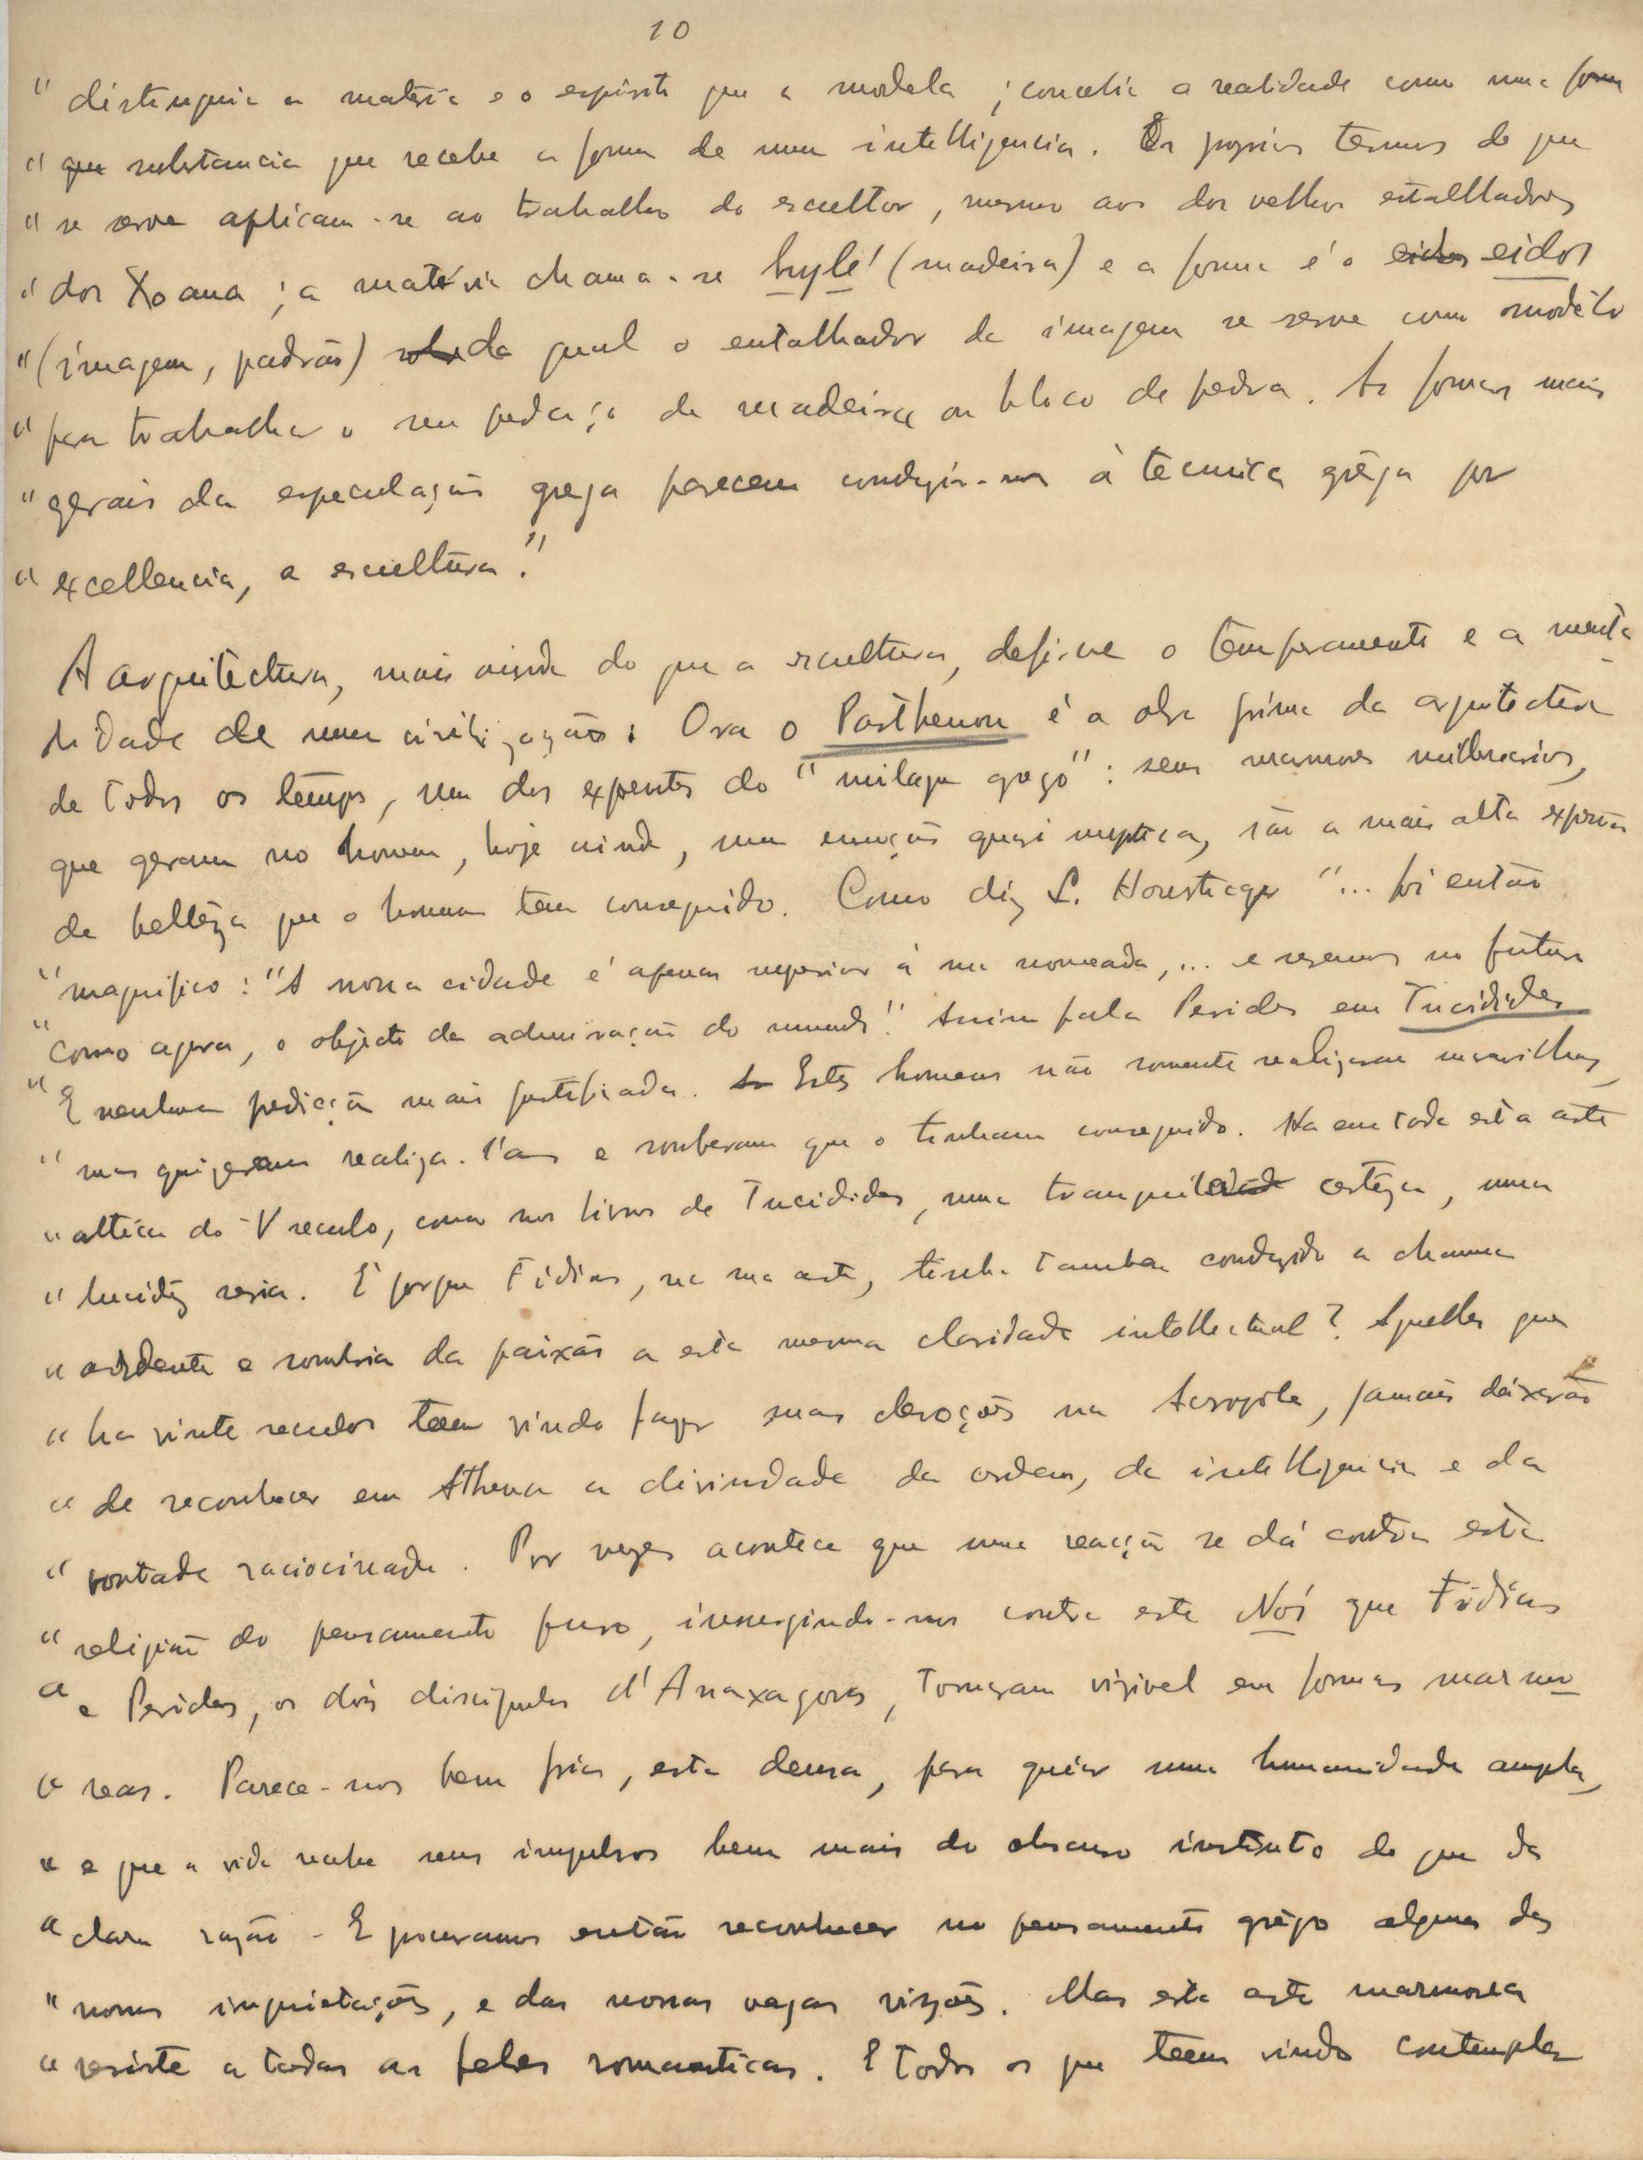 10
" distinguia a materia e o espirito que a modela ; concebia a realidade como uma forma
" que substancia que recebe a forma de uma intelligencia. Os proprios termos de que
" se serve aplicam-se ao trabalho do escultor, mesmo aos dos velhos entalhadores
" dos Xoana ; a matéria chama-se hylé (madeira) e a forma é o eidos eidos
" (imagem, padrão) da qual o entalhador da imagem se serve como modêlo
" para trabalhar o seu pedaço de madeira ou bloco de pedra. As formas mais
" gerais da especulação grega parecem conduzir-nos á tecnica grêga por
" excellencia, a escultura."
A arquitectura, mais ainda do que a escultura, define o temperamento e a menta-
lidade de uma civilização: Ora o Parthenon é a obra prima da arquitectura
de todos os tempos, um dos expoentes do "milagre grego" : seus marmores millenarios,
que geram no homem, hoje ainda, uma emoção quasi mystica, são a mais alta expressão
de bellêza que o homem tem conseguido. Como diz L. Hourticq "... foi então
" magnifico : "A nossa cidade é apenas superior á sua nomeada, ... e seremos no futuro
" como agora, o objecto da admiração do mundo". Assim fala Pericles em Tucidides
" E nenhuma predicção mais justificada. Estes homens não somente realizaram maravilhas,
" mas quizeram realiza-l'as e souberam que o tinham conseguido. Ha em toda esta arte
" attica do V seculo, como nos livros de Tucidides, uma tranquila certeza, uma
" lucidêz seria. E porque Fidias, na sua arte, tinha tambem conduzido a chamma
" ardente e sombria da paixão a esta mesma claridade intellectual ? Aquelles que
" ha vinte seculos teem vindo fazer suas devoções na Acropole, jamais deixarão
" de reconhecer em Athena a divindade da ordem, da intelligencia e da
" vontade raciocinada. Por vezes acontece que uma reacção se dá contra esta
" religião do pensamento puro, insurgindo-nos contra este Nós que Fidias
" e Pericles, os dois discipulos d'Anaxagoras, tornaram vizivel em formas marmo-
" reas. Parece-nos bem fria, esta deusa, para guiar uma humanidade ampla,
" e que a vida recebe seus impulsos bem mais do obscuro instinto do que da
" clara razão - E procuramos então reconhecer no pensamento grêgo algumas das
" nossas inquietações, e das nossas vagas visões. Mas esta arte marmorea
" resiste a todas as febres romanticas. E todos os que teem vindo contemplar